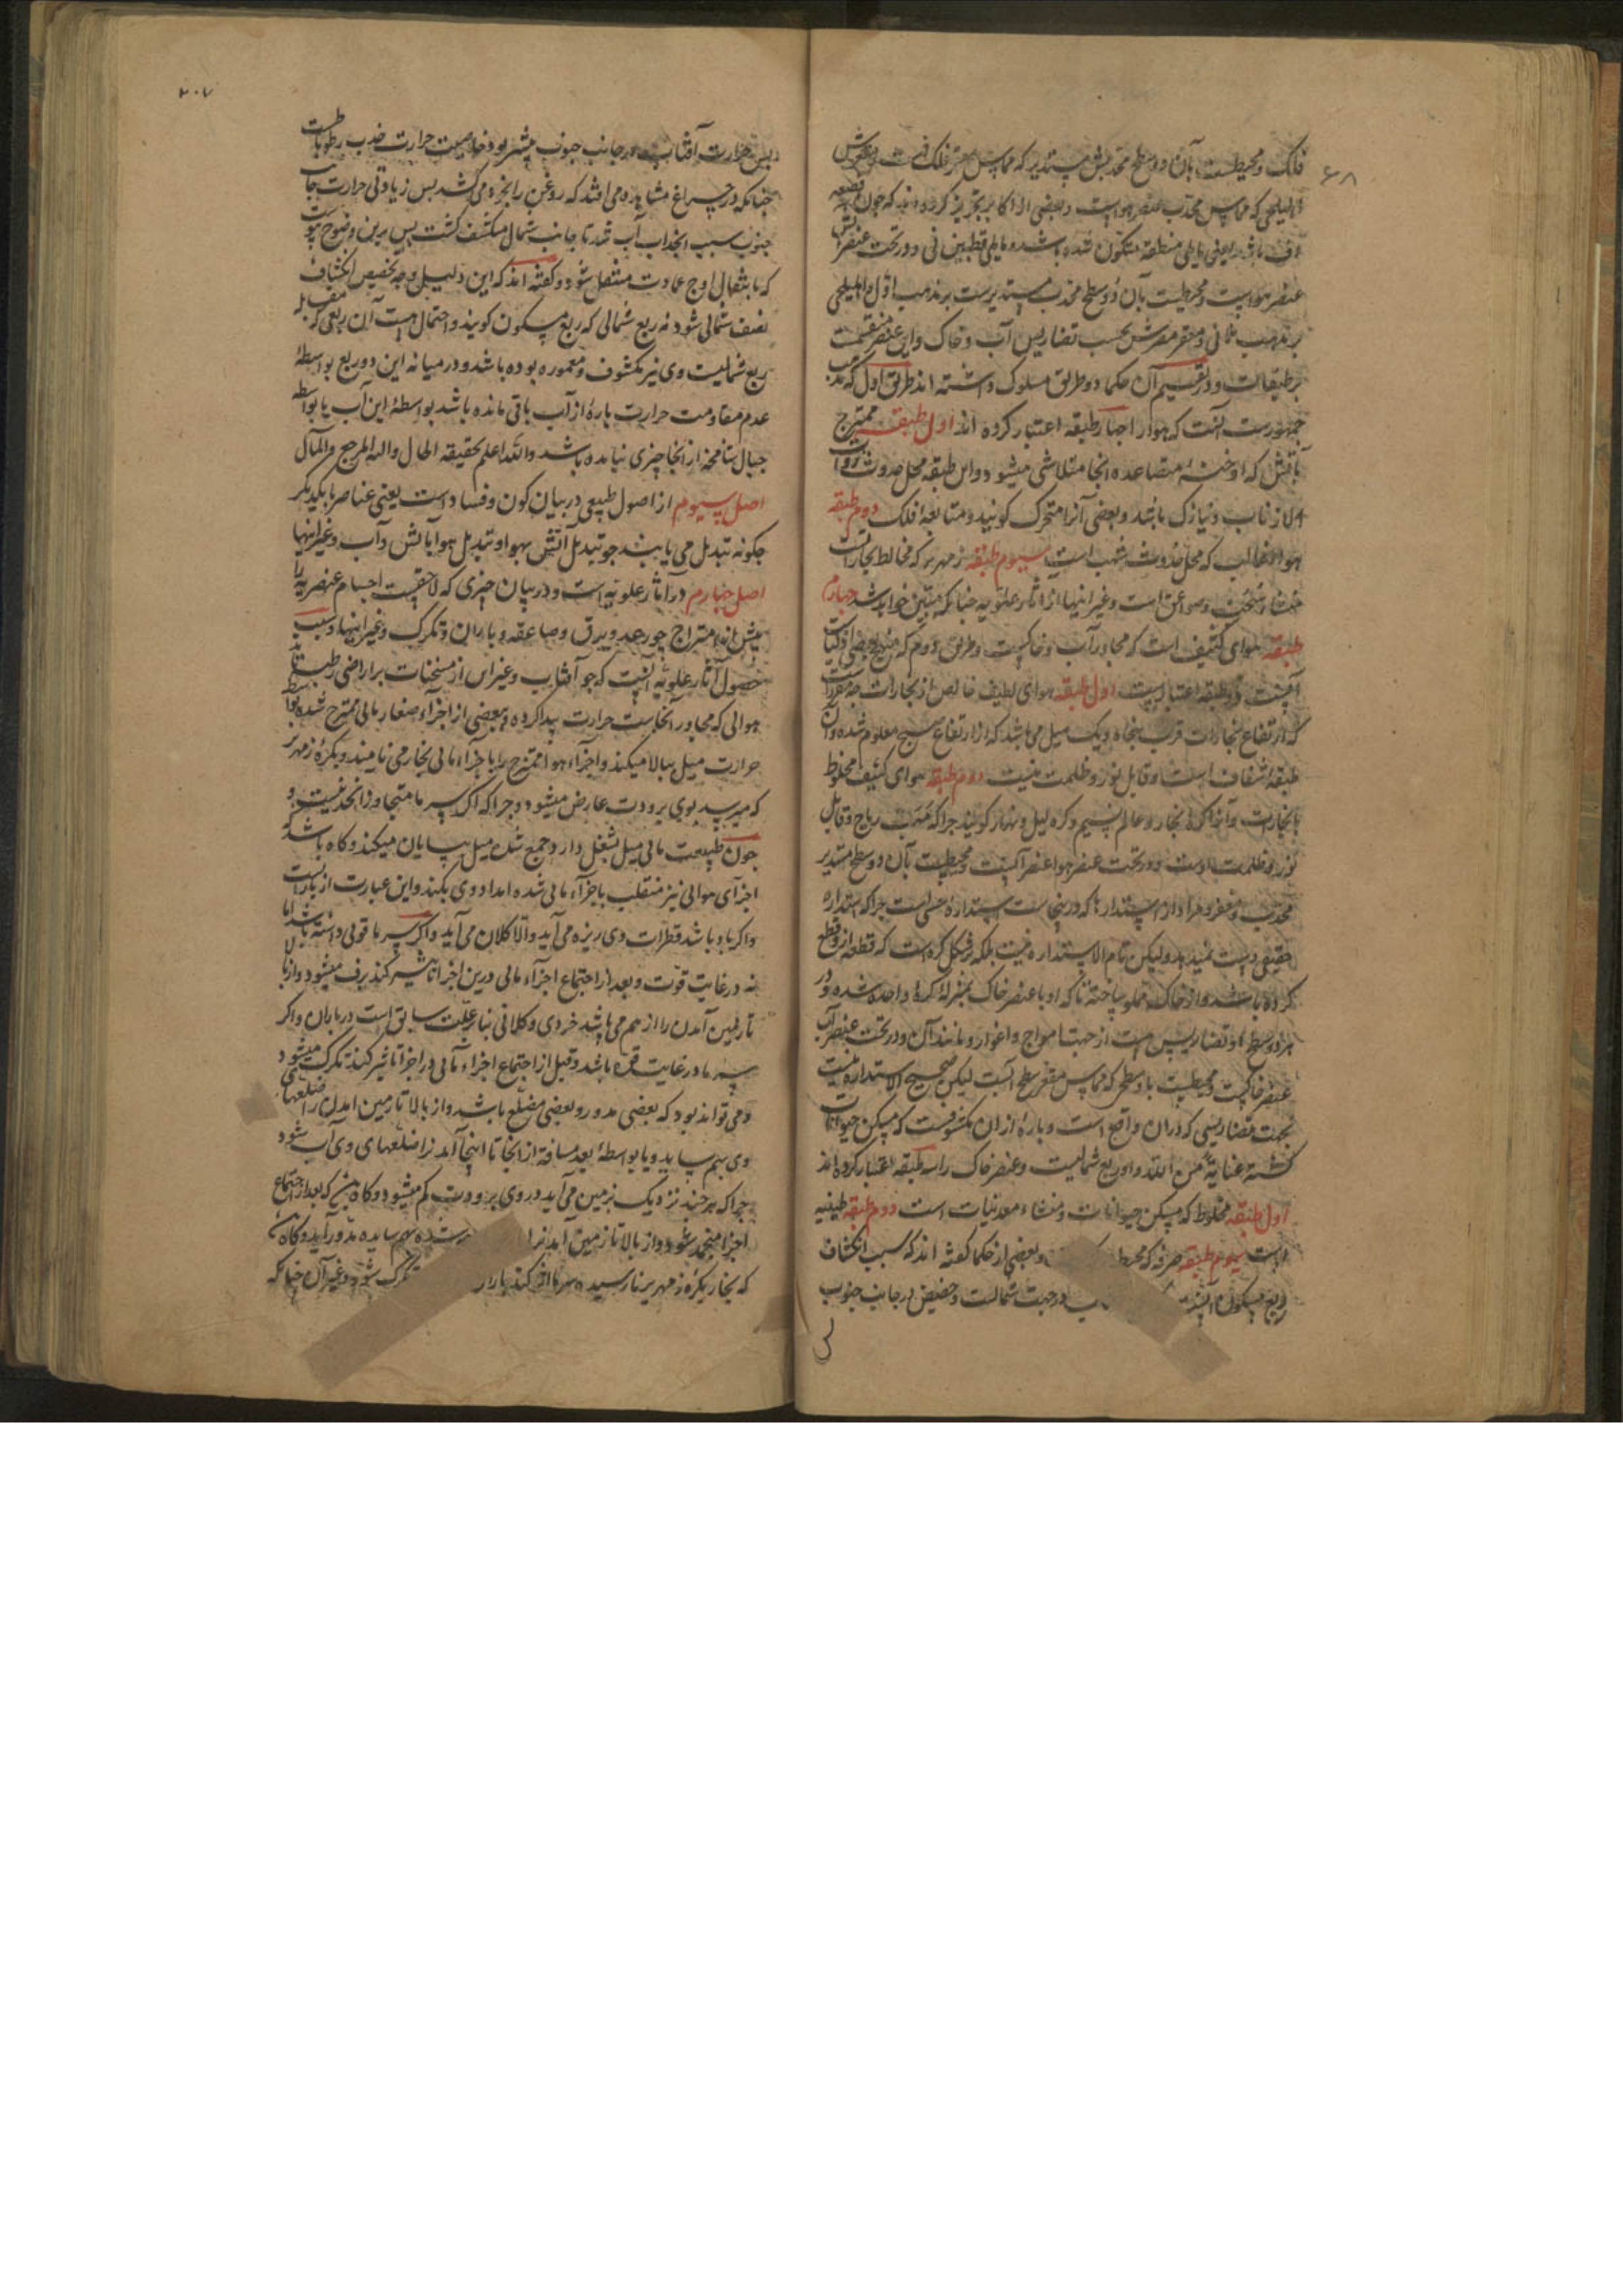 ۶۸
فلک و محیطست بآن دو سطح محدبش مستدیر که مماس مقعر فلک قمرست و مقعرش
اهلیلجی که مماس محدب عنصر هواست و بعضی از اکابر تجویز کرده اند که چون
یعنی مایلی منطقه متکون شده باشد و مایلی قطبین نی و در تحت عنصر آتش
عنصر هواست و محیطست بآن دو سطح محدب مستدیرست بر مذهب اول و اهلیلجی
بر مذهب ثانی و مقعر مضرس بحسب تضاریس آب و خاک و این عنصر منقسمست
بر طبقات و در تقسیم آن حکما دو طریق مسلوک داشته اند طریق اول که مذهب
جمهورست آنست که هوا را چهار طبقه اعتبار کرده اند اول طبقه ممتزج
بآتش که ادخنه متصاعده آنجا متلاشی میشود و این طبقه محل حدوث ذوات
الاذناب و نیازک باشد و بعضی آنرا متحرک کویند و متابعه افلک دوم طبقه
هوا غالب که محل حدوث شهب است سیوم طبقه زمهریر که مخالط بخارات
منشاء سحب و صواعق است و غیر اینها از آثار علویه چنانکه مبین خواهد شد چهارم
طبقه هوای کثیف است که مجاور آب و خاکست و طریق دوم که
دو طبقه اعتبار اول طبقه هوای لطیف خالص از بخارات
که ارتفاع بخارات قرب پنجاه و یک میل می باشد که از ارتفاع صبح معلوم شده و آن
طبقه شفاف است و قابل نور و ظلمت نیست دوم طبقه هوای کثیف مخلوط
بابخارات و آنرا کره بخار و عالم نسیم و کره لیل و نهار کویند چرا که مهب ریاح و قابل
نور و ظلمت اوست و در تحت عنصر هوا عنصر آبست و محیطست بآن دو سطح مستدیر
محدب و مقعر و مراد از استدارها که درینجاست استداره حسی است چرا که استداره
حقیقی دست نمیدهد ولیکن تام الاستداره نیست بلکه بر شکل کره است که قطعه از و قطع
کرده باشند و از خاک مملو ساخته تا که او با عنصر خاک بمنزله کره واحده شده و در
هر دو سطح او تضاریس هست از جهت امواج و اغوار و مانند آن و در تحت عنصر آب
عنصر خاکست و محیطست باو سطحی که مماس مقعر سطح آبست لیکن صحیح الاستداره نیست
بجهت تضاریسی که در آن واقع است و پاره از ان مکشوفست که مسکن حیوانات
کشته عنایة من الله و او ربع شمالیست و عنصر خاک را سه طبقه اعتبار کرده اند
اول طبقه مخلوط که مسکن حیوانات و منشاء معدنیات است دوم طبقه طینیه
است سیوم طبقه صرفه که محیط و بعضی از حکما کفته اند که سبب انکشاف
ربع مسکون در جهت شمالست و حضیض در جانب جنوب
۲۰۷
پس حرارت آفتاب در جانب جنوب بیشتر بود و خاصیت حرارت جذب رطوباتست
چنانکه در چراغ مشاهده می افتد که روغن را بخود می کشد پس زیادتی حرارت جانب
جنوب سبب انجذاب آب شد تا جانب شمال منکشف کشت پس برین وضوح پیوست
که بانتقال اوج عمارت منتقل شود و کفته اند که این دلیل وجه تخصیص انکشاف
نصف شمالی شود نه ربع شمالی که ربع مسکون کویند و احتمال هست آن ربعی که مقابله
ربع شمالیست وی نیز مکشوف و معموره بوده باشد و در میانه این دو ربع بواسطه
عدم مقاومت حرارت پاره از آب باقی مانده باشد بواسطه این آب یا بواسطه
جبال شامخه از آنجا چیزی نیامده باشد والله اعلم بحقیقة الحال والیه المرجع والمآل
اصل سیوم از اصول طبیعی در بیان کون و فساد است یعنی عناصر با یکدیکر
چکونه تبدیل می یابند چو تبدیل آتش بهوا و تبدیل هوا بآتش و آب و غیر اینها
اصل چهارم در آثار علویه است و در بیان چیزی که لاحقست اجسام عنصریه را
پیش از امتزاج چو رعد و برق و صاعقه و باران و تکرک و غیر اینها و سبب
حصول آثار علویه آنست که چو آفتاب و غیر آن از مسخنات بر اراضی رطبه تابد
هوائی که مجاور آنجاست حرارت پیدا کرده و بعضی از اجزاء صغار مائی ممتزج شده بواسطه
حرارت میل ببالا میکند و اجزاء هوا ممتزج را با جزاء مائی بخار می نامند و بکره زمهریر
که میرسد بوی برودت عارض میشود و چرا که اکر سرما متجاوز از حد نیست و
چون طبیعت مائی میل بثقل دارد جمع شده میل بپایان میکند و کاه باشد که
اجزای هوائی نیز منقلب باجزاء مائی شده امداد وی بکند و این عبارت از بارانست
و اکر باد باشد قطرات وی ریزه می آید و الا کلان می آید و اکر سرما قوتی داشته باشد اما
نه در غایت قوت و بعد از اجتماع اجزاء مائی درین اجزا تاثیر کند برف میشود و از بالا
تا زمین آمدن را از هم می پاشد خردی و کلانی بنابر علت سابق است در باران و اکر
سرما در غایت قوه باشد و قبل از اجتماع اجزاء مائی در اجزا تاثیر کند تکرک میشود
و می تواند بود که بعضی مدور و بعضی مضلع باشد و از بالا تا زمین آمدن را ضلعهای
وی بهم ساید و یا بواسطه بعد مسافة از آنجا تا اینجا آمدنرا ضلعهای وی آب شود
چرا که هر چند نزدیک بزمین می آید در وی برودت کم میشود و کاه که بعد از اجتماع
اجزا منجمد شود و از بالا تا زمین آمدنرا بهم ساییده مدور آید و کاه
که بخار بکره زمهریر نارسیده سرما اثر کند تکرک شود و غیر آن چنانکه